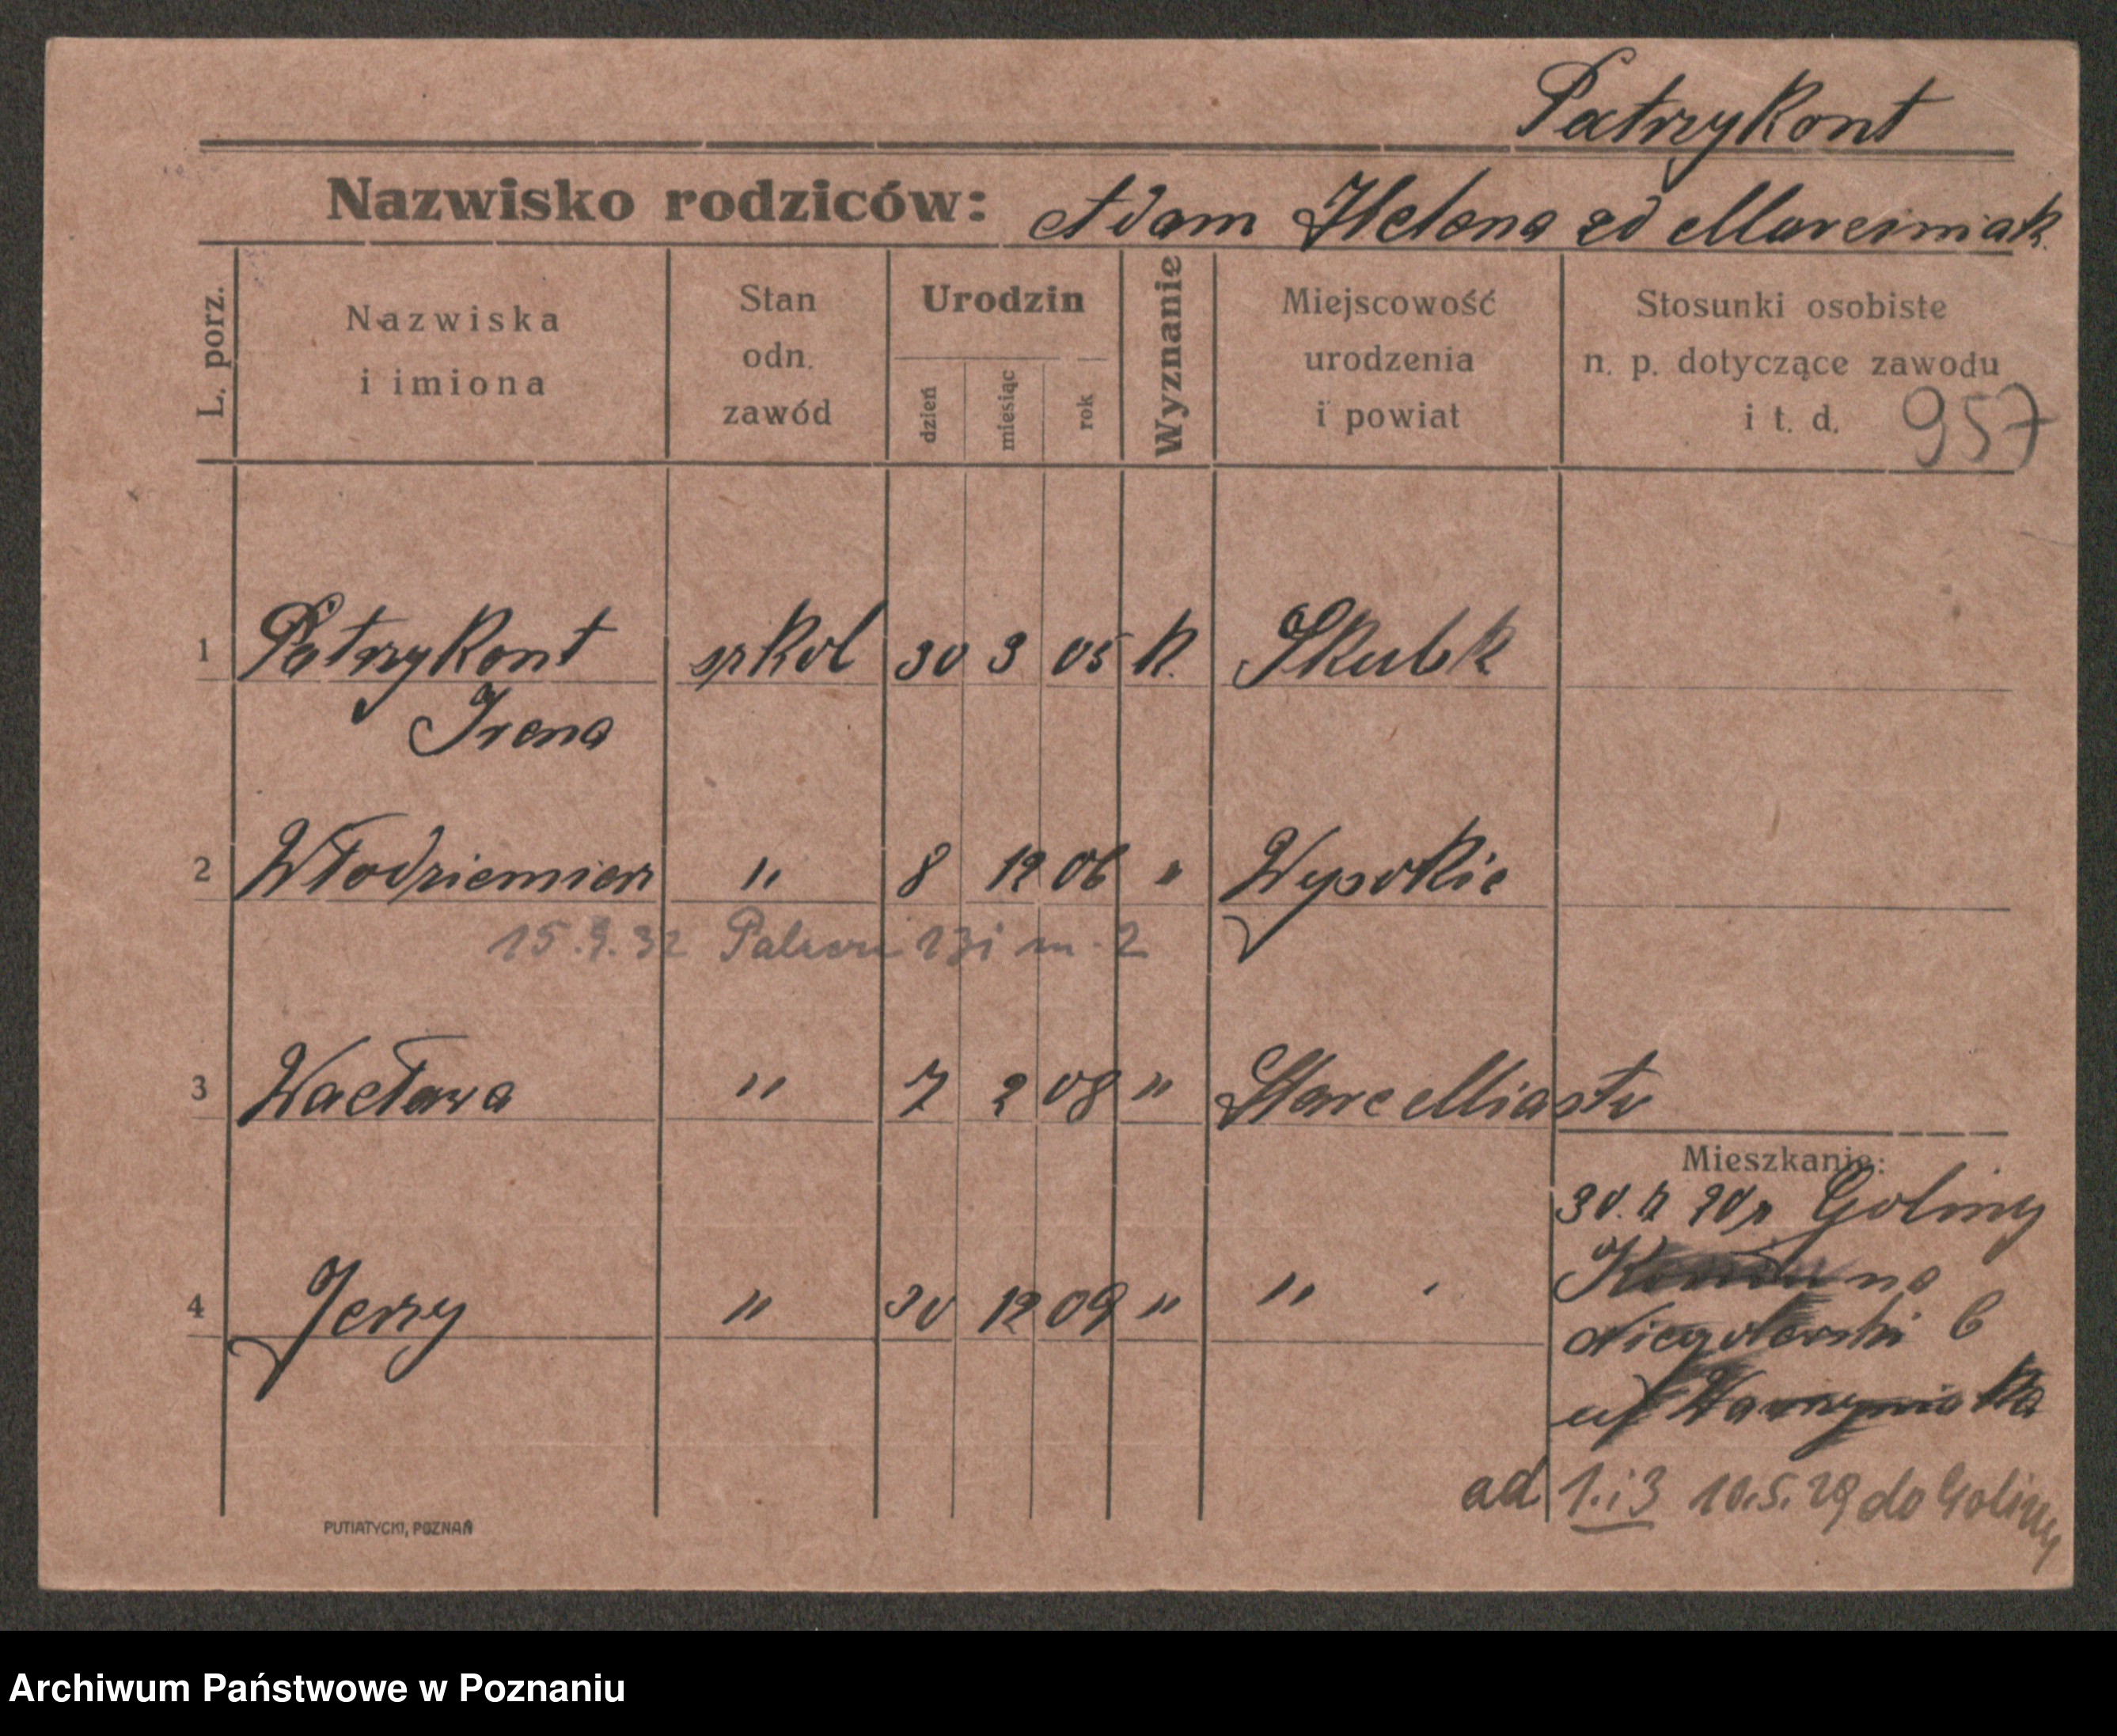 Patrzykont
Nazwisko rodziców: Adam Helena zd Marciniak
L. porz.
Nazwiska i imiona
Stan odn. zawód
Urodzin
dzień miesiąc rok
Wyznanie
Miejscowość urodzenia i powiat
Stosunki osobiste n. p. dotyczące zawodu i t. d.
957
1 Patrzykont szkol 30 3 05 k. Skulsk
Irena
2 Włodziemierz " 8 12 06 " Wysokie
15.9.32 m. 2
3 Wacława " 7 2 08 " Stare Miasto
Mieszkanie:
Goliny
4 Jerzy " 30 12 09 " "
na
Niegolewski 6
ad 1. i 3 10.5.29 do Goliny
PUTIATYCKI, POZNAŃ
Archiwum Państwowe w Poznaniu